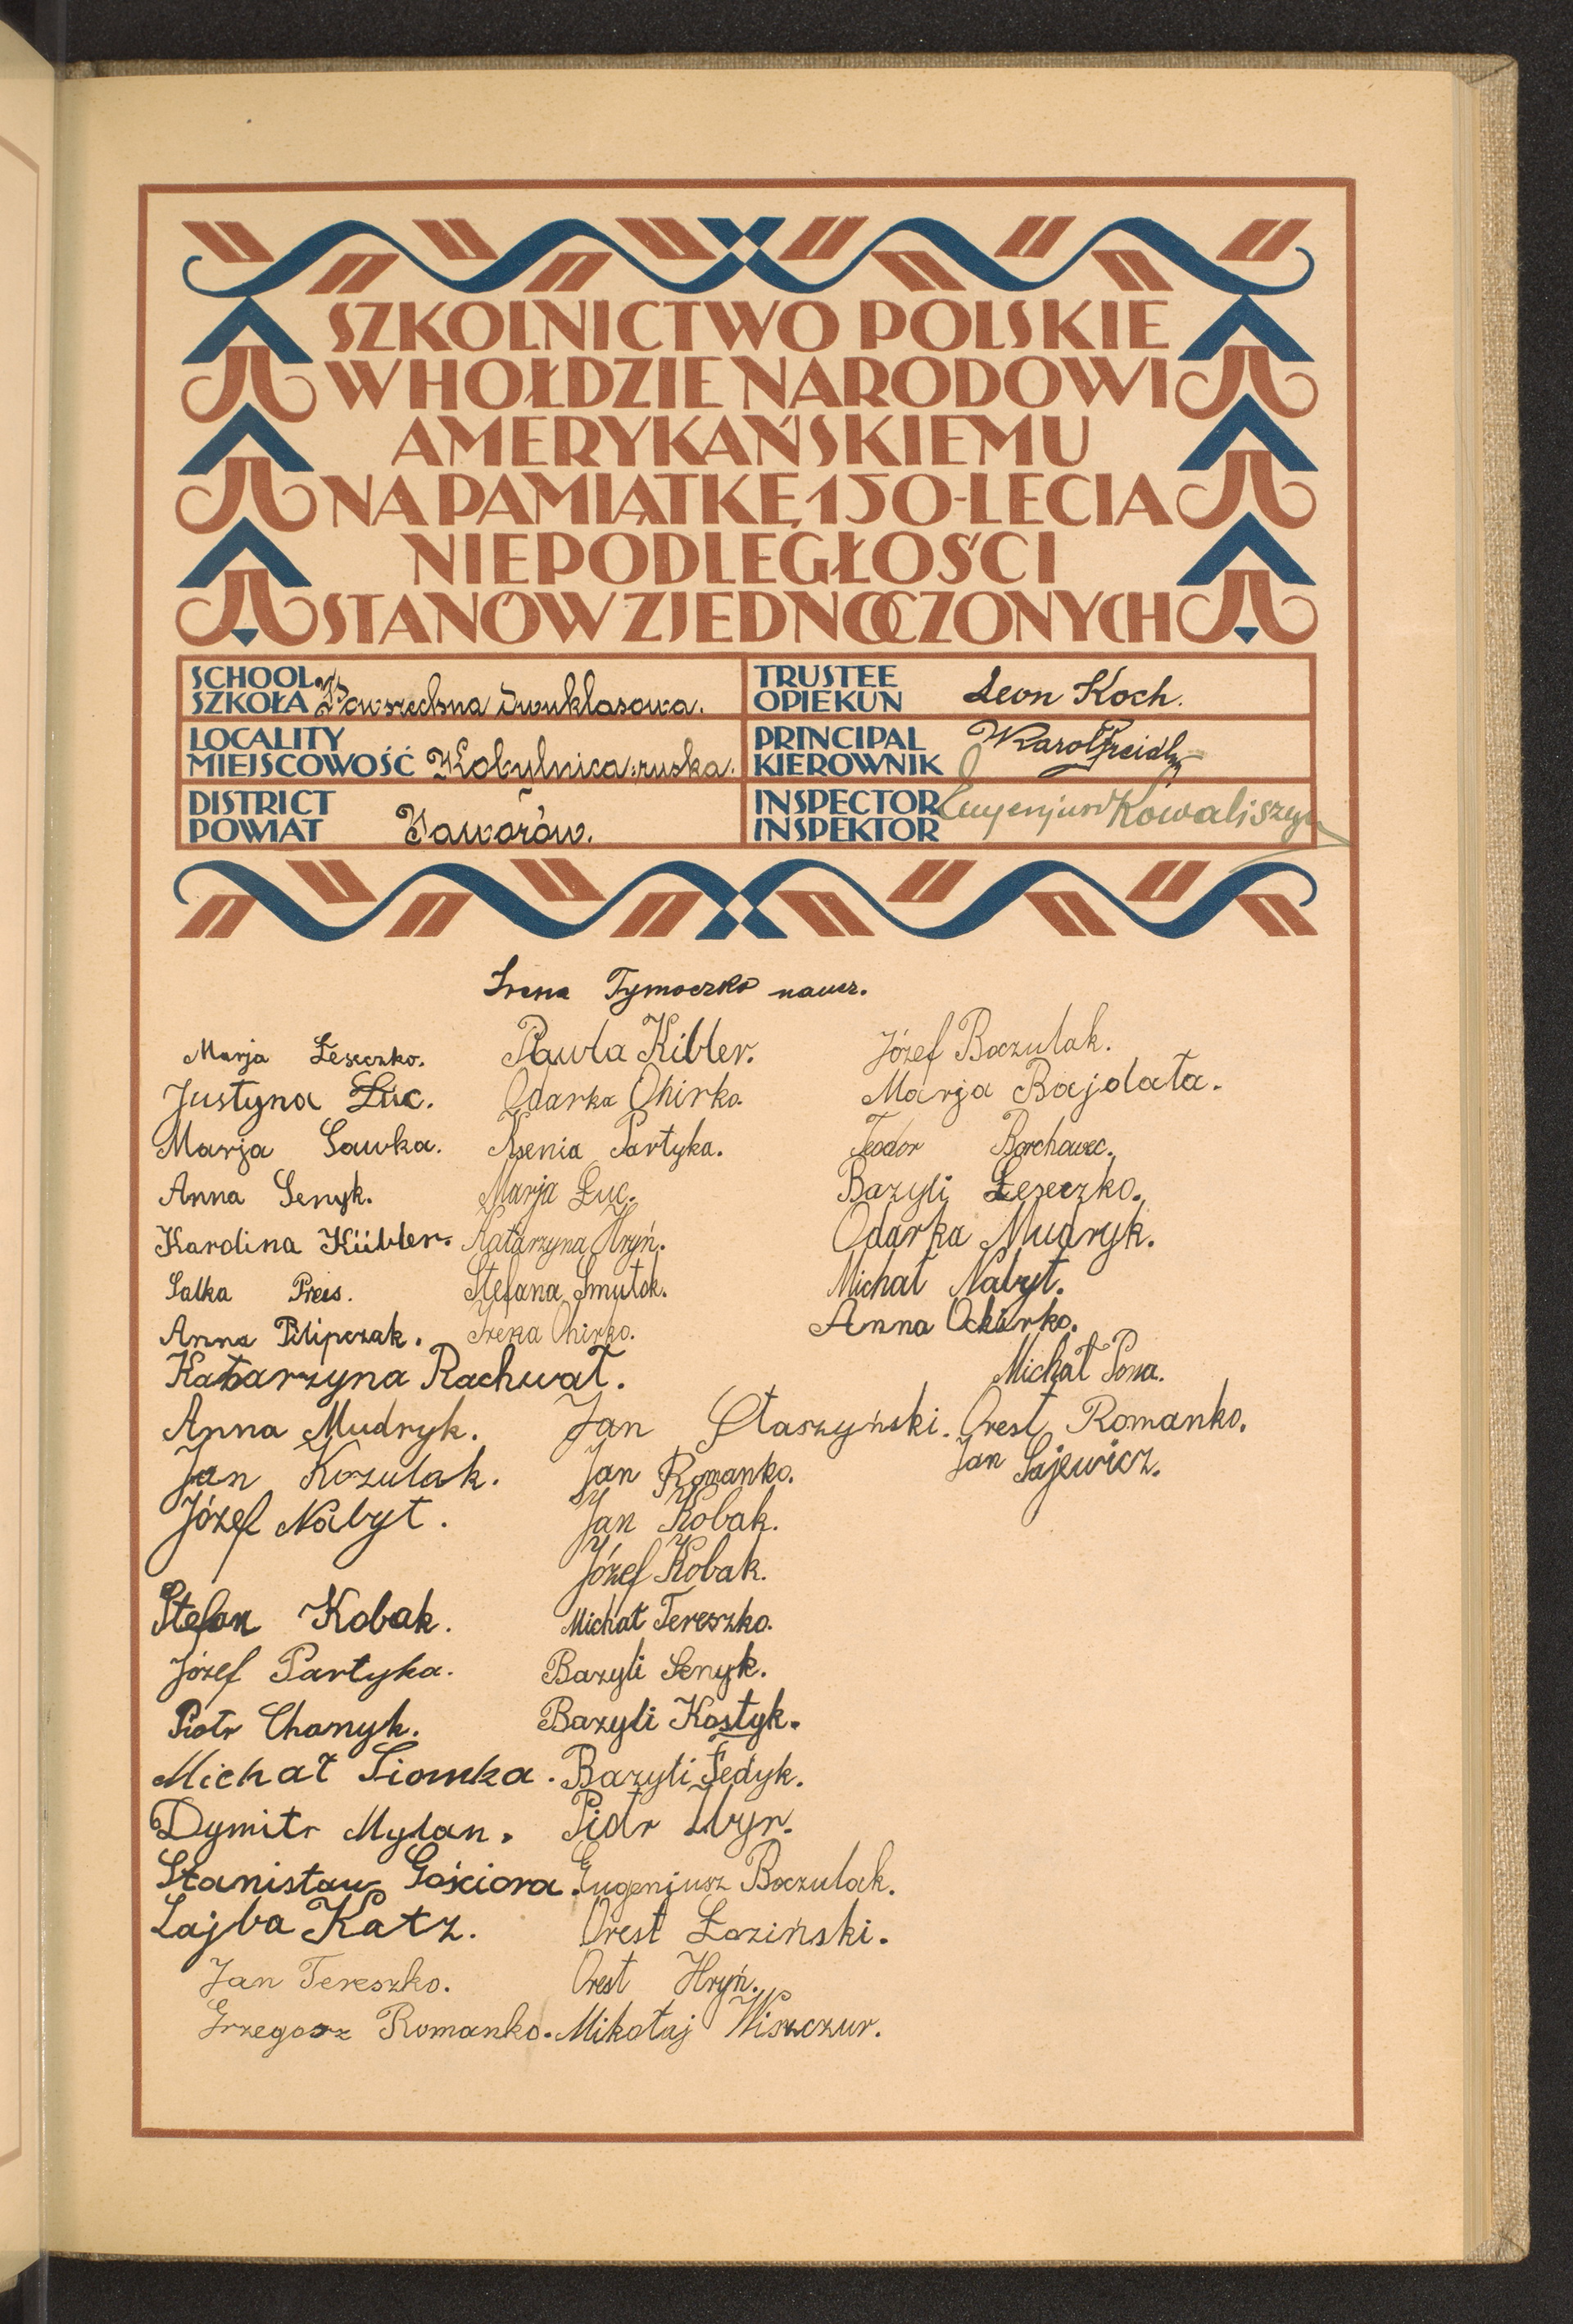 SZKOLNICTWO POLSKIE
W HOŁDZIE NARODOWI
AMERYKAŃSKIEMU
NA PAMIĄTKĘ 150-LECIA
NIEPODLEGŁOŚCI
STANÓW ZJEDNOCZONYCH
SCHOOL
SZKOŁA Powszechna dwuklasowa.
TRUSTEE
OPIEKUN Leon Koch.
LOCALITY
MIEJSCOWOŚĆ Kobylnica ruska.
PRINCIPAL
KIEROWNIK Karol
DISTRICT
POWIAT Jaworów.
INSPECTOR
INSPEKTOR Eugenjusz Kowaliszyn
Irena Tymoczko naucz.
Marja Łeseczko. Pawła Kibler. Józef Boczulak.
Justyna Łuc. Odarka Ohirko. Marja Bajdała.
Marja Sawka. Ksenia Partyka. Teodor Borchowec.
Anna Senyk. Marja Łuc. Bazyli Łeseczko.
Karolina Kübler. Katarzyna Hryń. Odarka Mudryk.
Salka Preis. Stefana Smułok. Michał Nabyt.
Anna Pilipczak. Irena Ohirko. Anna Ochirko.
Katarzyna Rachwał. Michał Pona.
Anna Mudryk. Jan Staszyński. Orest Romanko.
Jan Kozulak. Jan Romanko. Jan Sajewicz.
Józef Nabyt. Jan Kobak.
Józef Kobak.
Stefan Kobak. Michał Tereszko.
Józef Partyka. Bazyli Senyk.
Piotr Chanyk. Bazyli Kostyk.
Michał Siomka. Bazyli Fedyk.
Dymitr Mylan. Piotr
Stanisław Gościora. Eugenjusz Boczulak.
Lajba Katz. Orest Łoziński.
Jan Tereszko. Orest Hryń.
Grzegorz Romanko. Mikołaj Wiszczur.